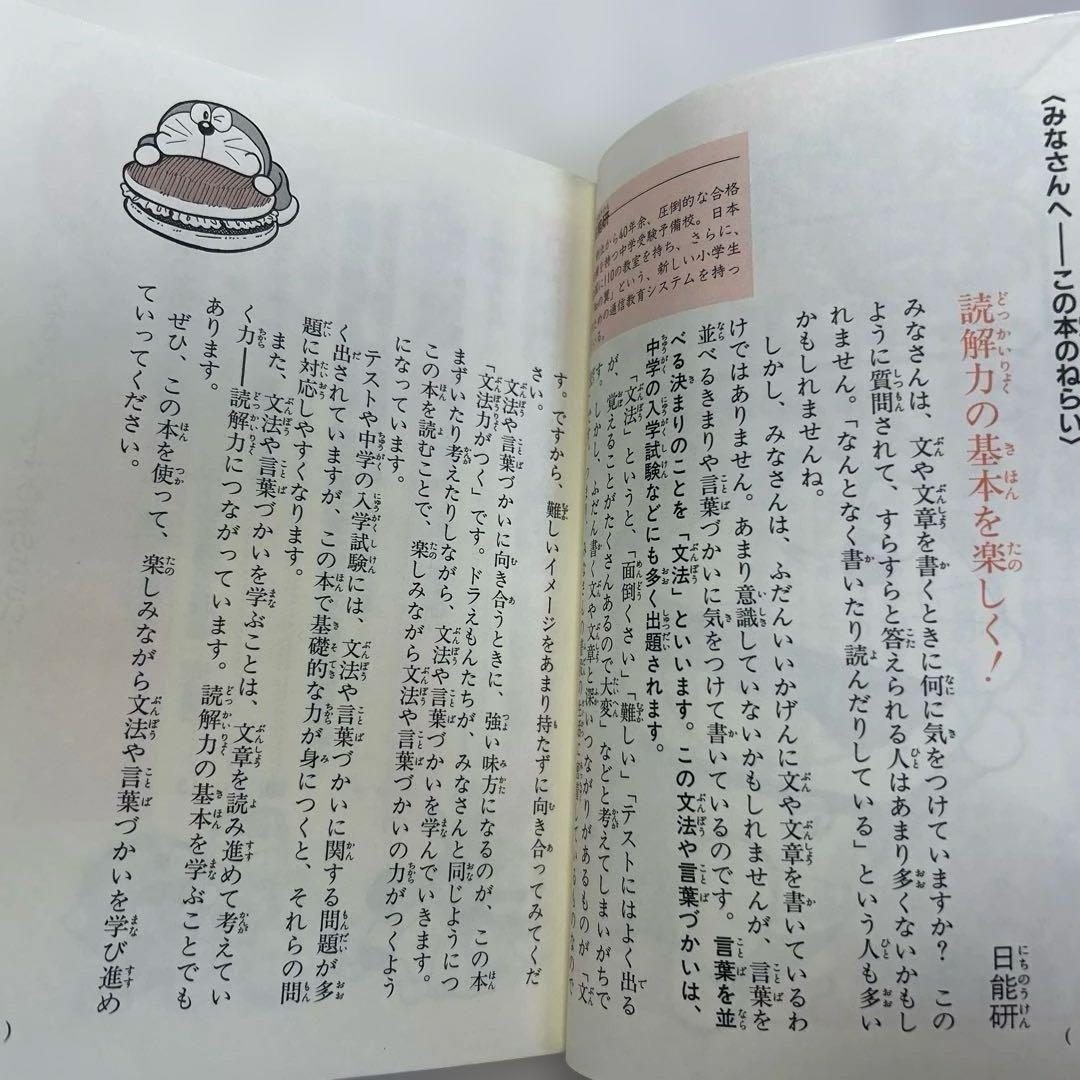 〈みなさんへ――この本のねらい〉
読解力の基本を楽しく！
日能研
みなさんは、文や文章を書くときに何に気をつけていますか？　この
ように質問されて、すらすらと答えられる人はあまり多くないかもし
れません。「なんとなく書いたり読んだりしている」という人も多い
かもしれませんね。
しかし、みなさんは、ふだんいいかげんに文や文章を書いているわ
けではありません。あまり意識していないかもしれませんが、言葉を
並べるきまりや言葉づかいに気をつけて書いているのです。言葉を並
べる決まりのことを「文法」といいます。この文法や言葉づかいは、
中学の入学試験などにも多く出題されます。
「文法」というと、「面倒くさい」「難しい」「テストにはよく出る
が、覚えることがたくさんあるので大変」などと考えてしまいがちで
す。しかし、ふだん書く文や文章と深いつながりがあるものが「文
から40年余、圧倒的な合格
を持つ中学受験予備校。日本
に110の教室を持ち、さらに、
の翼」という、新しい小学生
ための通信教育システムを持っ
す。ですから、難しいイメージをあまり持たずに向き合ってみてくだ
さい。
文法や言葉づかいに向き合うときに、強い味方になるのが、この本
「文法力がつく」です。ドラえもんたちが、みなさんと同じようにつ
まずいたり考えたりしながら、文法や言葉づかいを学んでいきます。
この本を読むことで、楽しみながら文法や言葉づかいの力がつくよう
になっています。
テストや中学の入学試験には、文法や言葉づかいに関する問題が多
く出されていますが、この本で基礎的な力が身につくと、それらの問
題に対応しやすくなります。
また、文法や言葉づかいを学ぶことは、文章を読み進めて考えてい
く力――読解力につながっています。読解力の基本を学ぶことでも
あります。
ぜひ、この本を使って、楽しみながら文法や言葉づかいを学び進め
ていってください。